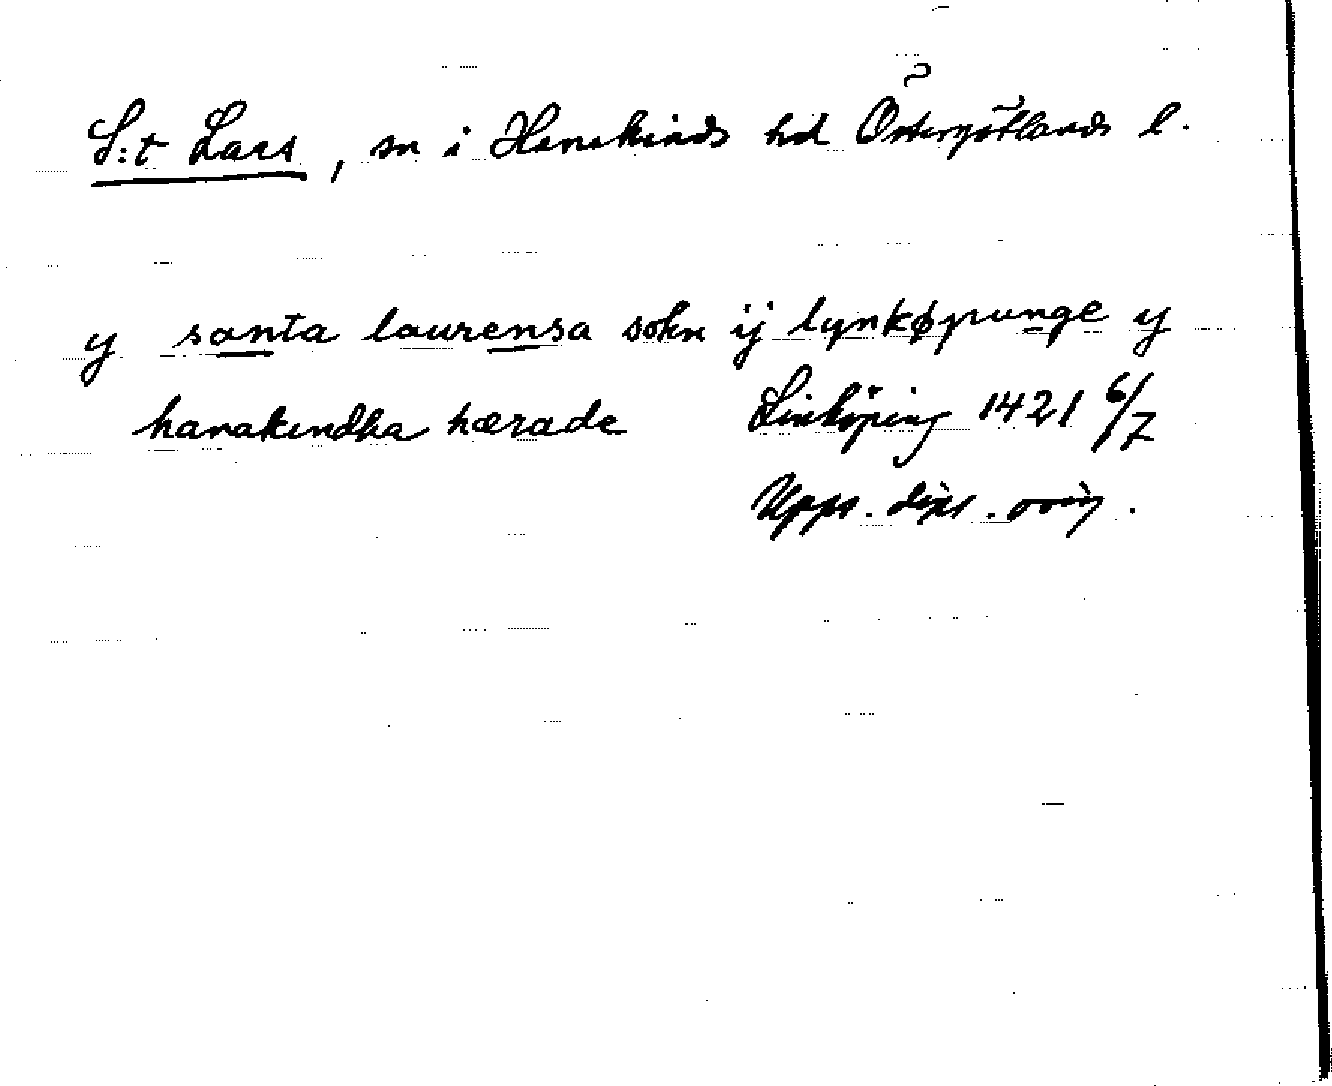 S:t Lars, sn i Hanekinds hd Östergötlands l.
y santa laurensa sokn ij lynkøpunge y
hanakindha hærade Linköping 1421 6/7
Upps. dipl. orig.